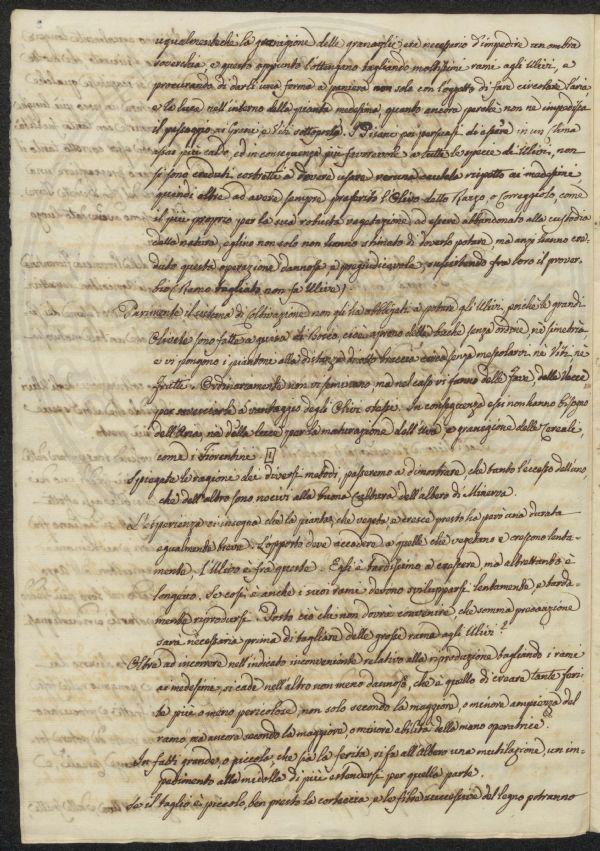 ugualmente che la granigione delle granaglie, era necessario d'impedire un ombra
soverchia, e questo appunto l'ottengano tagliando moltissimi rami agli Ulivi, e
procurando di darli una forma a paniera non solo con l'oggetto di fare circolare l'aria
e la luce nell'interno della pianta medesima, quanto ancora perché non ne impedisca
il passaggio ai Grani e Viti sottoposte. I Pisani poi persuasi di essere in un clima
assai più caldo, ed in conseguenza più favorevole a tutte le specie di Ulivi, non
si sono creduti costretti a dovere usare veruna cautela rispetto ai medesimi
quindi oltre ad avere sempre preferito l'Olivo detto Razzo, o Correggiolo, come
il più proprio per la sua robusta vegetazione, ad essere abbandonato alla custodia
della natura, eglino non solo non hanno stimato di doverlo potare ma anzi hanno cre-
duto questa operazione dannosa e pregiudicevole, suscitando fra loro il prover-
bio (Ramo tagliato non fa Ulive).
Parimente il sistema di Coltivazione non gli ha obbligati a potare gli Ulivi, perché le grandi
Olivete sono fatte a guisa di bosco, cioè aprono delle buche senza ordine, né simetria
e vi pongono i piantoni alla distanza di otto braccia circa senza mescolarvi né Viti, né
Frutti. Ordinariamente non vi seminano, ma nel caso vi fanno delle Fave, delle Vecce
per rovesciarle a vantaggio degli Olivi stessi. In conseguenza essi non hanno bisogno
dell'Aria, né della luce per la maturazione dell'Uva, e granigione delle Cereali,
come i Fiorentini. [1]
Spiegate le ragioni dei diversi metodi, passeremo a dimostrare, che tanto l'eccesso dell'uno,
che dell'altro sono nocivi alla buona Cultura dell'albero di Minerva.
L'esperienza ci insegna che la pianta, che vegeta, e cresce presto ha pero una durata
egualmente breve. L'opposto deve accadere a quelle che vegetano e crescono lenta-
mente, l'Ulivo è fra queste. Egli è tardissimo a crescere, ma altrettando è
longevo. Se così è anche i suoi rami devono svilupparsi lentamente e tarda-
mente riprodursi. Posto ciò chi non dovrà convenire, che somma precauzione
sarà necessaria prima di tagliare delle grosse rama agli Ulivi?
Oltre ad incorrere nell'indicato inconveniente relativo alla riproduzione tagliando i rami
ai medesimi, si cade nell'altro non meno dannoso, che è quello di creare tante feri-
te più o meno pericolose, non solo secondo la maggiore, o minore ampiezza del
ramo ma ancora secondo la maggiore, o minore abilità della mano operatrice.
In fatti grande, o piccola, che sia la ferita, si fa all'Albero una mutilazione, un im-
pedimento alla midolla di più estendersi per quella parte.
Se il taglio è piccolo, ben presto la corteccia e le fibre successive del legno potranno